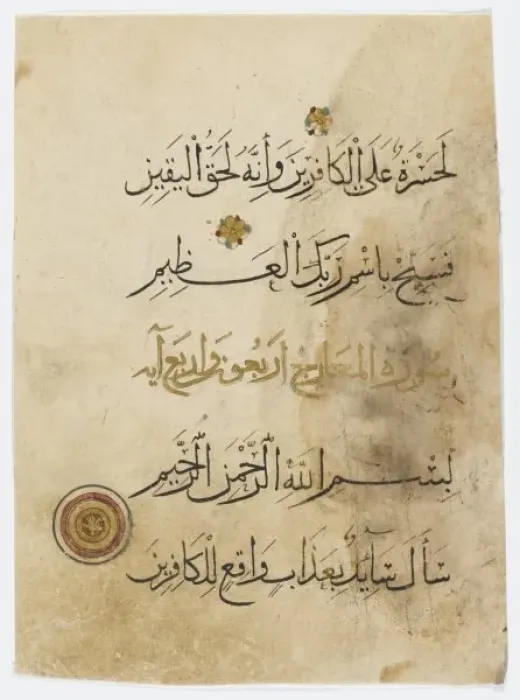 لَحَسْرَةٌ عَلَى الْكَافِرِينَ وَإِنَّهُ لَحَقُّ الْيَقِينِ
فَسَبِّحْ بِاسْمِ رَبِّكَ الْعَظِيمِ
سورة المعارج أربعون واربع آية
بِسْمِ اللَّهِ الرَّحْمَنِ الرَّحِيمِ
سَأَلَ سَآئِلٌ بِعَذَابٍ وَاقِعٍ لِلْكَافِرِينَ